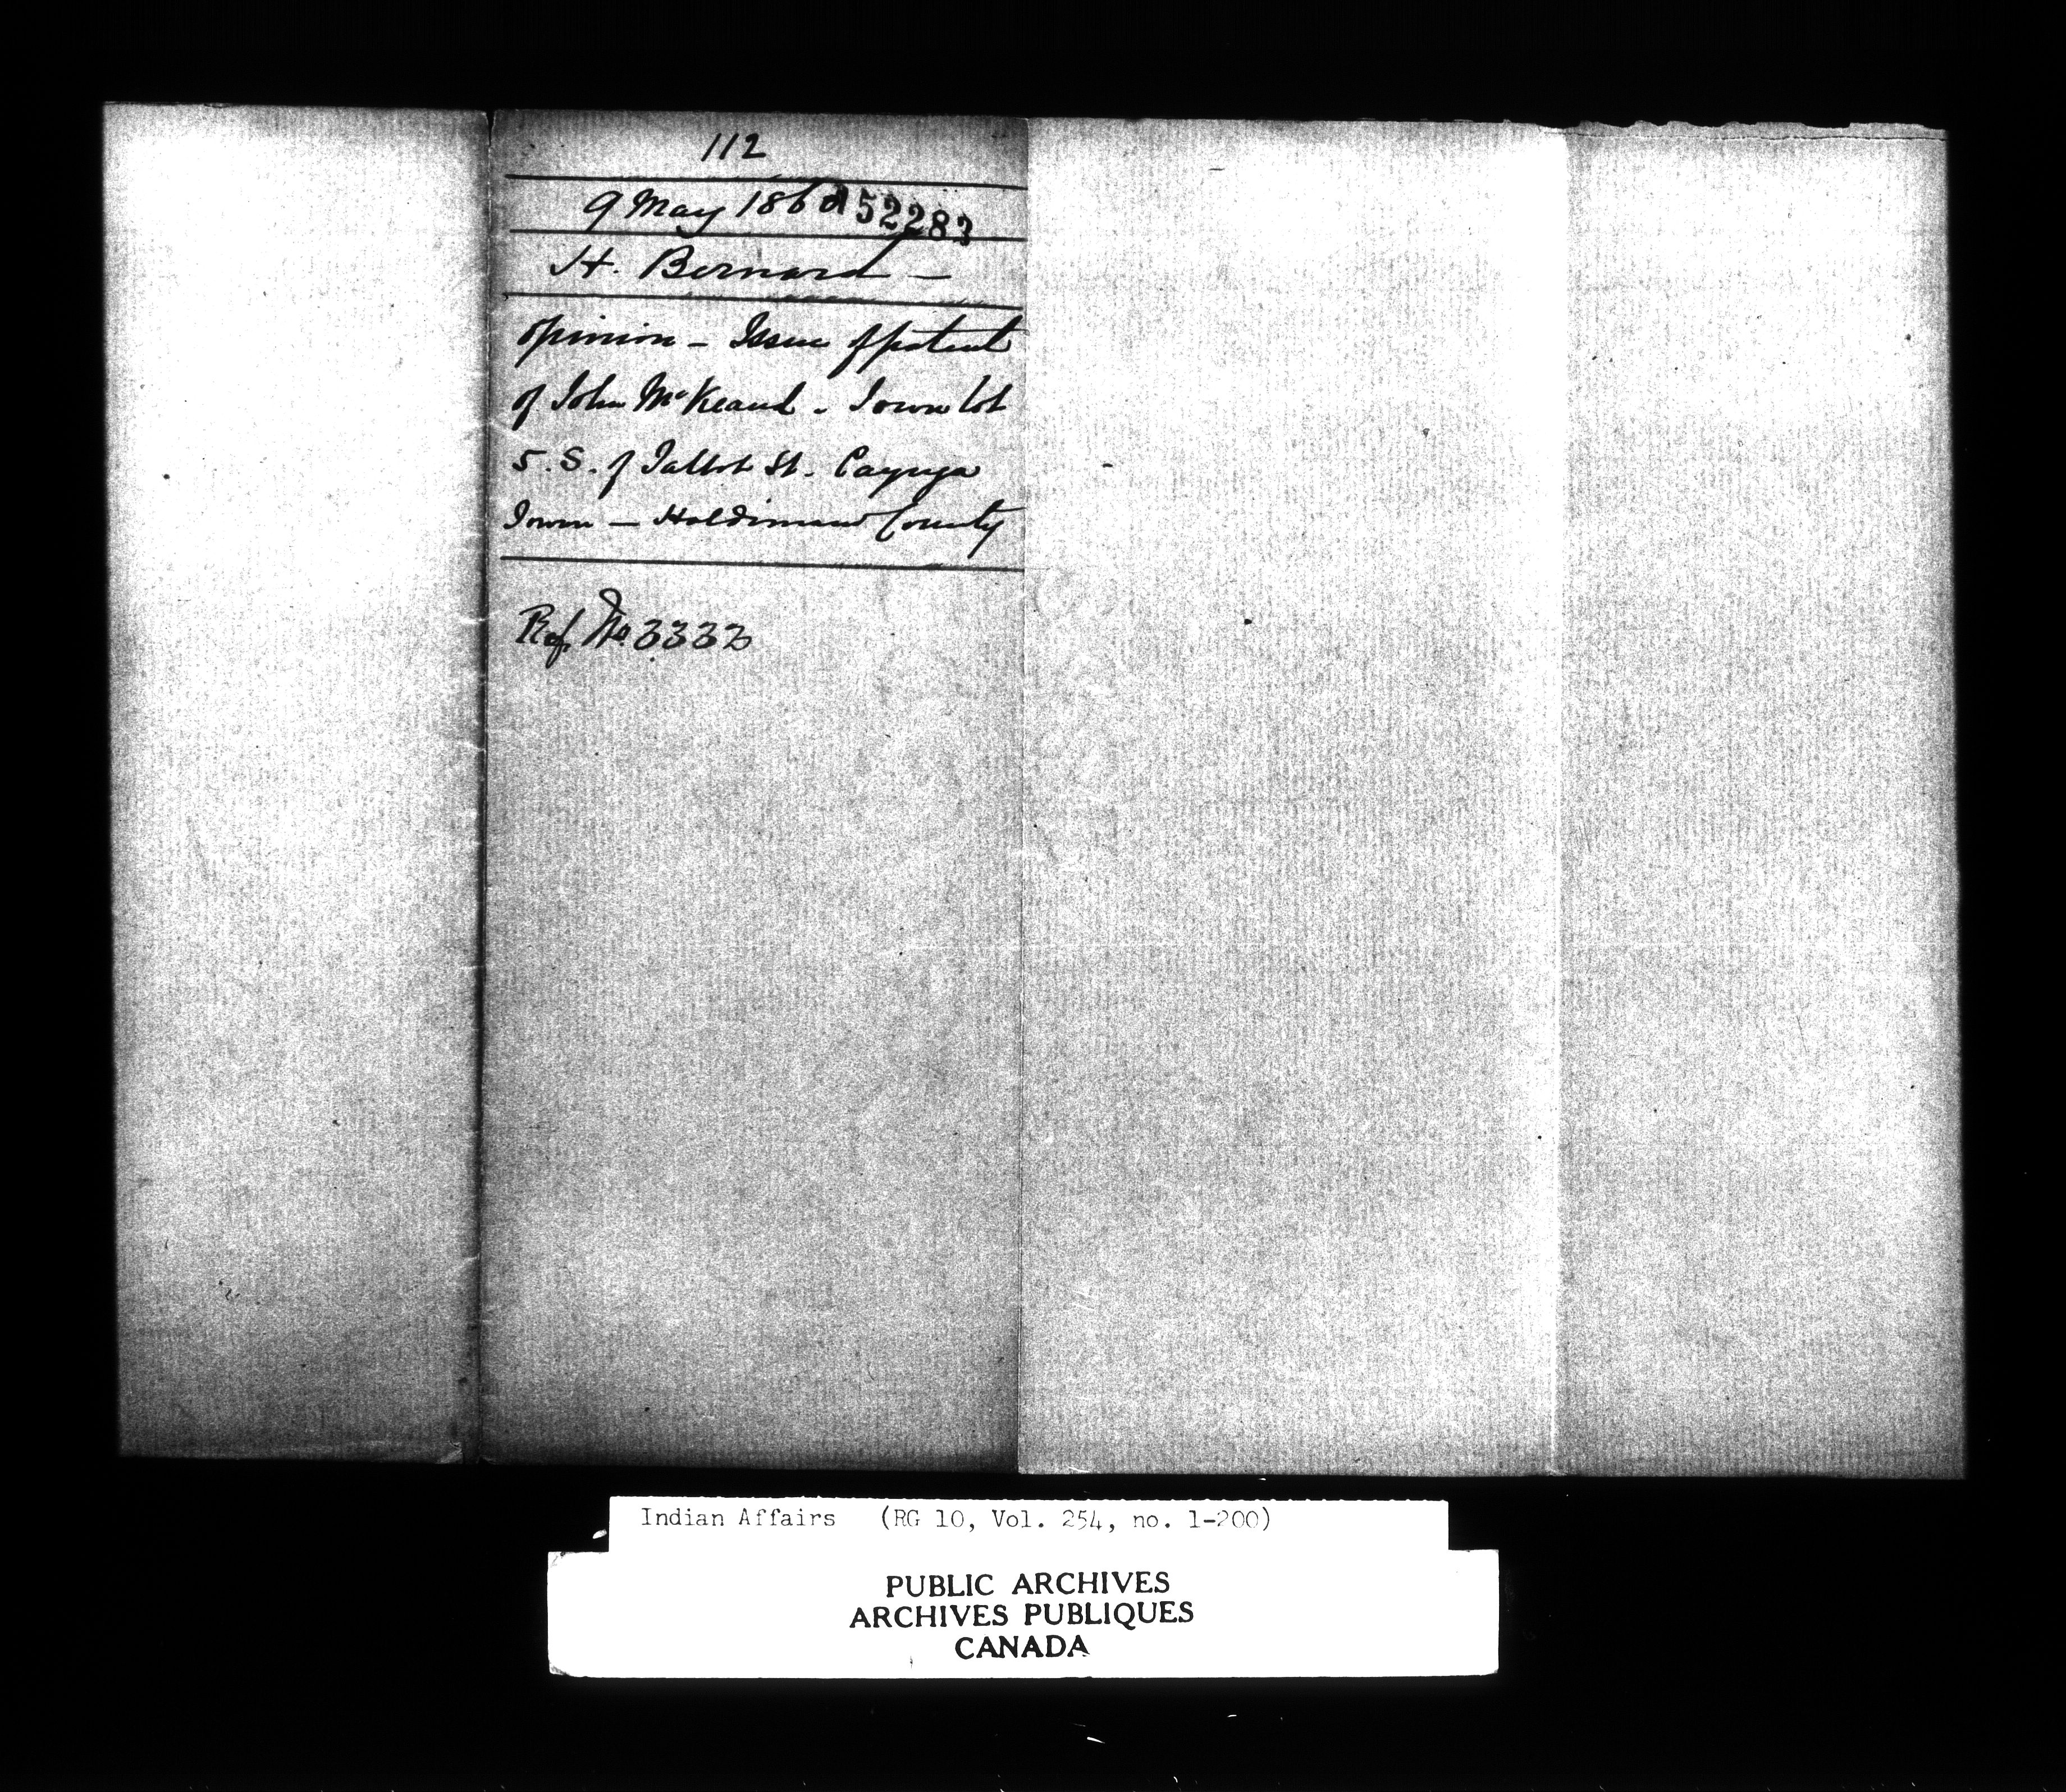 112
9 May 186 152283
H. Bernard —
Opinion — Issue of patent
of John McKeand. Town lot
5. S. of Talbot St. Cayuga
Town — Haldimand County
Ref. No. 3333
Indian Affairs (RG 10, Vol. 254, no. 1-200)
PUBLIC ARCHIVES
ARCHIVES PUBLIQUES
CANADA